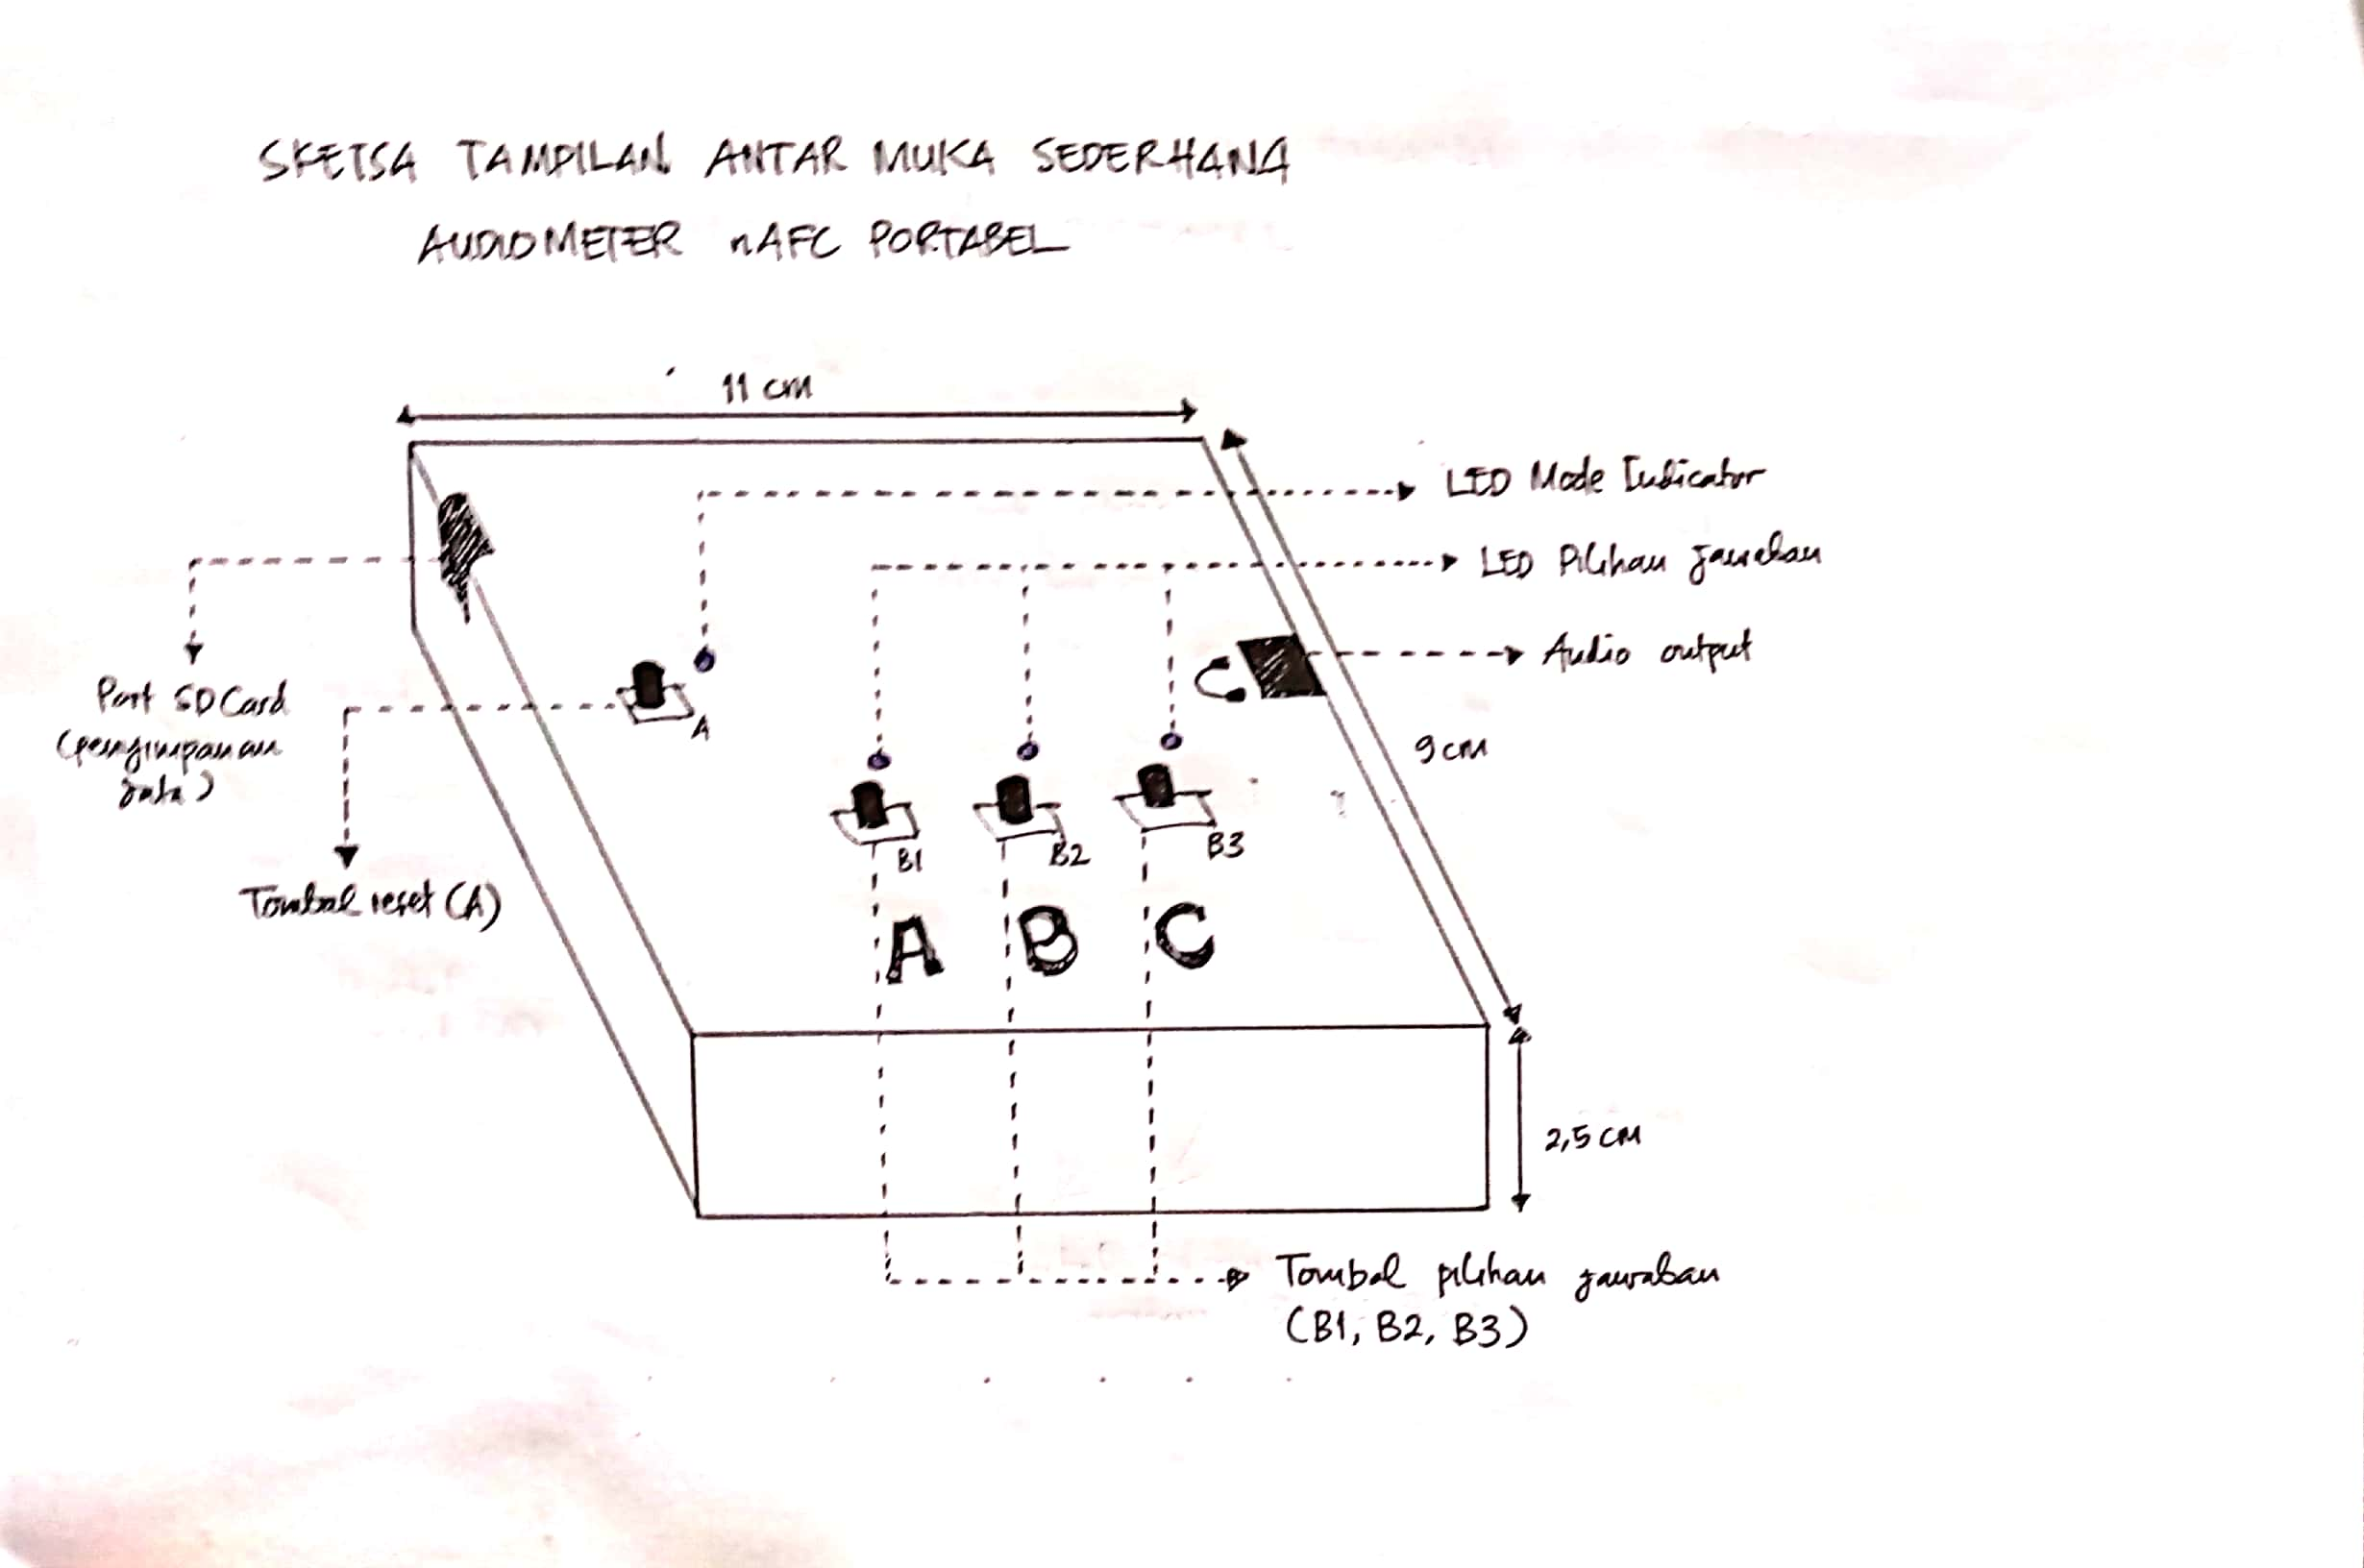 SKETSA TAMPILAN ANTAR MUKA SEDERHANA
AUDIOMETER nAFC PORTABEL
11 cm
LED Mode Indicator
LED Pilihan jawaban
Audio output
Port SD Card
(penyimpanan
data)
A
9 cm
B1
B2
B3
Tombol reset (A)
A
B
C
2,5 cm
Tombol pilihan jawaban
(B1, B2, B3)